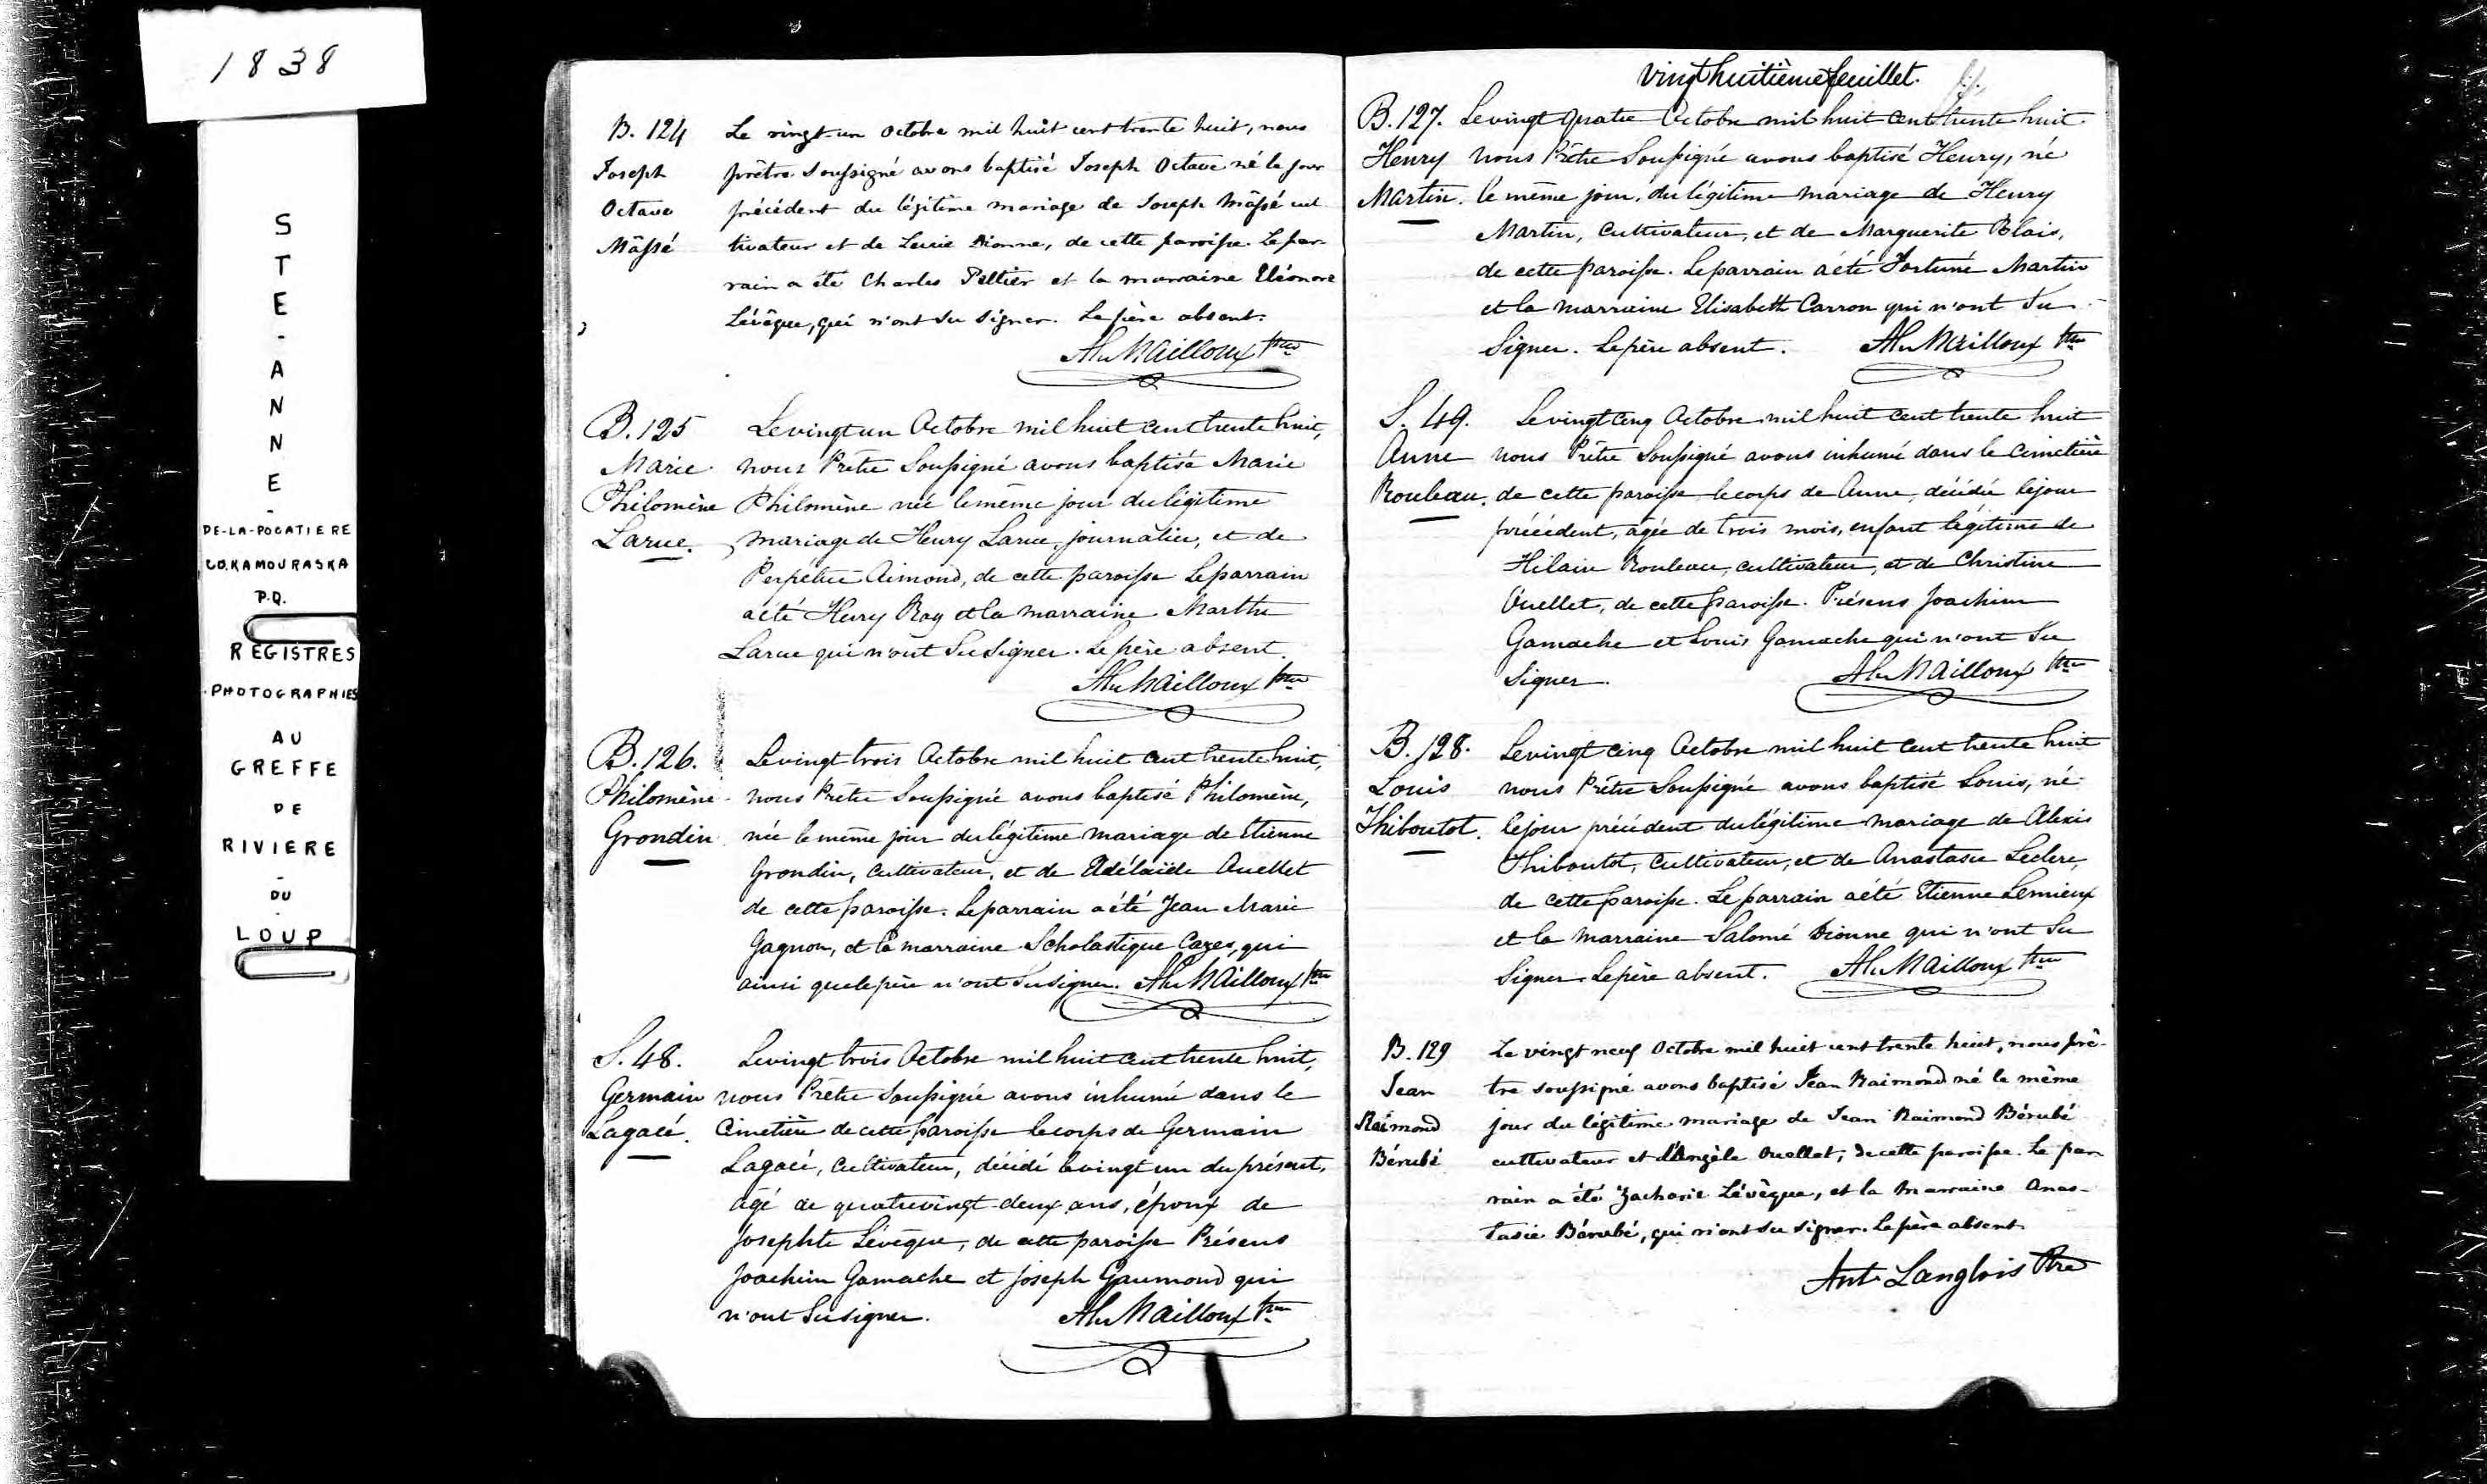 1838
STE-ANNE-
DE-LA-POCATIERE
CO.KAMOURASKA
P.Q.
REGISTRES
PHOTOGRAPHIES
AU
GREFFE
DE
RIVIERE
-
DU
LOUP
B. 124 Le vingt-un Octobre mil huit cent trente huit, nous
Joseph prêtre soussigné avons baptisé Joseph Octave né le jour
Octave précédent du légitime mariage de Joseph Mâssé cul
Mâssé tivateur et de Lucie Dionne, de cette paroisse. Le par-
rain a été Charles Peltier et la marraine Eléonore
Lévêque, qui n'ont su signer. Le père absent.
Alx. Mailloux Ptre
B. 125 Le vingt un Octobre mil huit cent trente huit,
Marie nous Prêtre Soussigné avons baptisé Marie
Philomène Philomène née le même jour du légitime
Larue. mariage de Henry Larue, journalier, et de
Perpétue Aimond, de cette paroisse Le parrain
a été Henry Roy et la marraine Marthe
Larue qui n'ont Su Signer. Le père absent.
Alx. Mailloux Ptre
B. 126. Le vingt trois Octobre mil huit cent trente huit,
Philomène nous Prêtre Soussigné avons baptisé Philomène,
Grondin née le même jour du légitime mariage de Etienne
Grondin, cultivateur, et de Adélaïde Ouellet
de cette paroisse. Le parrain a été Jean Marie
Gagnon, et la marraine Scholastique Cazes, qui
ainsi que le père n'ont Su signer. Alx. Mailloux Ptre
S. 48. Le vingt trois Octobre mil huit cent trente huit,
Germain nous Prêtre Soussigné avons inhumé dans le
Lagacé. Cimetière de cette paroisse le corps de Germain
Lagacé, Cultivateur, décédé le vingt un du présent,
âgé de quatrevingt deux ans, époux de
Josephte Lévêque, de cette paroisse Présens
Joachim Gamache et Joseph Gaumond qui
n'ont Su signer. Alx. Mailloux Ptre
Vingt huitième feuillet.
B. 127. Le vingt quatre Octobre mil huit cent trente huit
Henry nous Prêtre Soussigné avons baptisé Henry, né
Martin. le même jour, du légitime mariage de Henry
Martin, Cultivateur, et de Marguerite Blais,
de cette paroisse. Le parrain a été Fortuné Martin
et la marraine Elisabeth Carron qui n'ont Su
Signer. Le père absent. Alx. Mailloux Ptre
S. 49. Le vingt cinq Octobre mil huit cent trente huit
Anne nous Prêtre Soussigné avons inhumé dans le cimetière
Rouleau. de cette paroisse le corps de Anne, décédée le jour
précédent, agée de trois mois, enfant légitime de
Hilaire Rouleau, cultivateur, et de Christine
Ouellet, de cette paroisse. Présens Joachim
Gamache et Louis Gamache qui n'ont Su
Signer. Alx. Mailloux Ptre
B. 128. Le vingt cinq Octobre mil huit cent trente huit
Louis nous Prêtre Soussigné avons baptisé Louis, né
Thiboutot. le jour précédent du légitime mariage de Alexis
Thiboutot, Cultivateur, et de Anastasie Leclerc,
de cette paroisse. Le parrain a été Etienne Lemieux
et la marraine Salomé Dionne qui n'ont Su
Signer Le père absent. Alx. Mailloux Ptre
B. 129 Le vingt neuf Octobre mil huit cent trente huit, nous prê-
Jean tre soussigné avons baptisé Jean Raimond né le même
Raimond jour du légitime mariage de Jean Raimond Bérubé
Bérubé cultivateur et d'Angèle Ouellet, de cette paroisse. Le par
rain a été Zacharie Lévêque, et la marraine Anas-
tasie Bérubé, qui n'ont su signer. Le père absent.
Ant. Langlois Ptre